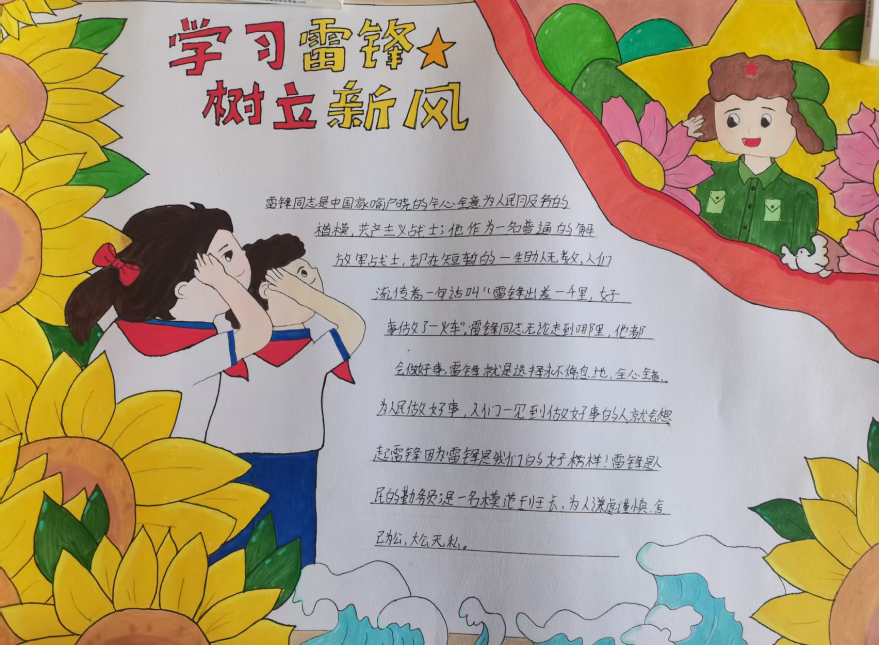 学习雷锋
树立新风
雷锋同志是中国家喻户晓的全心全意为人民服务的
楷模,共产主义战士;他作为一名普通的解
放军战士,却在短暂的一生助人无数,人们
流传着一句话叫“雷锋出差一千里,好
事做了一火车”,雷锋同志无论走到哪里,他都
会做好事。雷锋就是选择永不停息地,全心全意。
为人民做好事,人们一见到做好事的人就会想
起雷锋因为雷锋是我们的好榜样!雷锋是人
民的勤务员;是一名模范班长,为人谦虚谨慎,舍
己为公,大公无私。